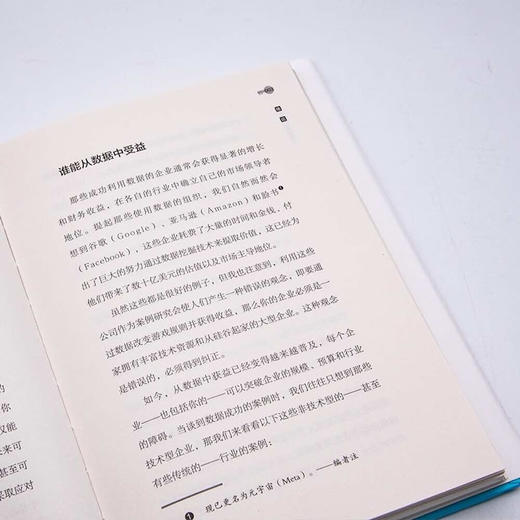 你
又能
来来可
甚至可
采取应对
谁能从数据中受益
那些成功利用数据的企业通常会获得显著的增长
和财务收益，在各自的行业中确立自己的市场领导者
地位。提起那些使用数据的组织，我们自然而然会
想到谷歌（Google）、亚马逊（Amazon）和脸书❶
（Facebook），这些企业耗费了大量的时间和金钱，付
出了巨大的努力通过数据挖掘技术来提取价值，这已经为
他们带来了数十亿美元的估值以及市场主导地位。
虽然这些都是很好的例子，但我也注意到，利用这些
公司作为案例研究会使人们产生一种错误的观念，即要通
过数据改变游戏规则并获得收益，那么你的企业必须是一
家拥有丰富技术资源和从硅谷起家的大型企业。这种观念
是错误的，必须得到纠正。
如今，从数据中获益已经变得越来越普及，每个企
业——也包括你的——可以突破企业的规模、预算和行业
的障碍。当谈到数据成功的案例时，我们往往只想到那些
技术型企业，那我们来看看以下这些非技术型的——甚至
有些传统的——行业的案例：
❶ 现已更名为元宇宙（Meta）。——编者注